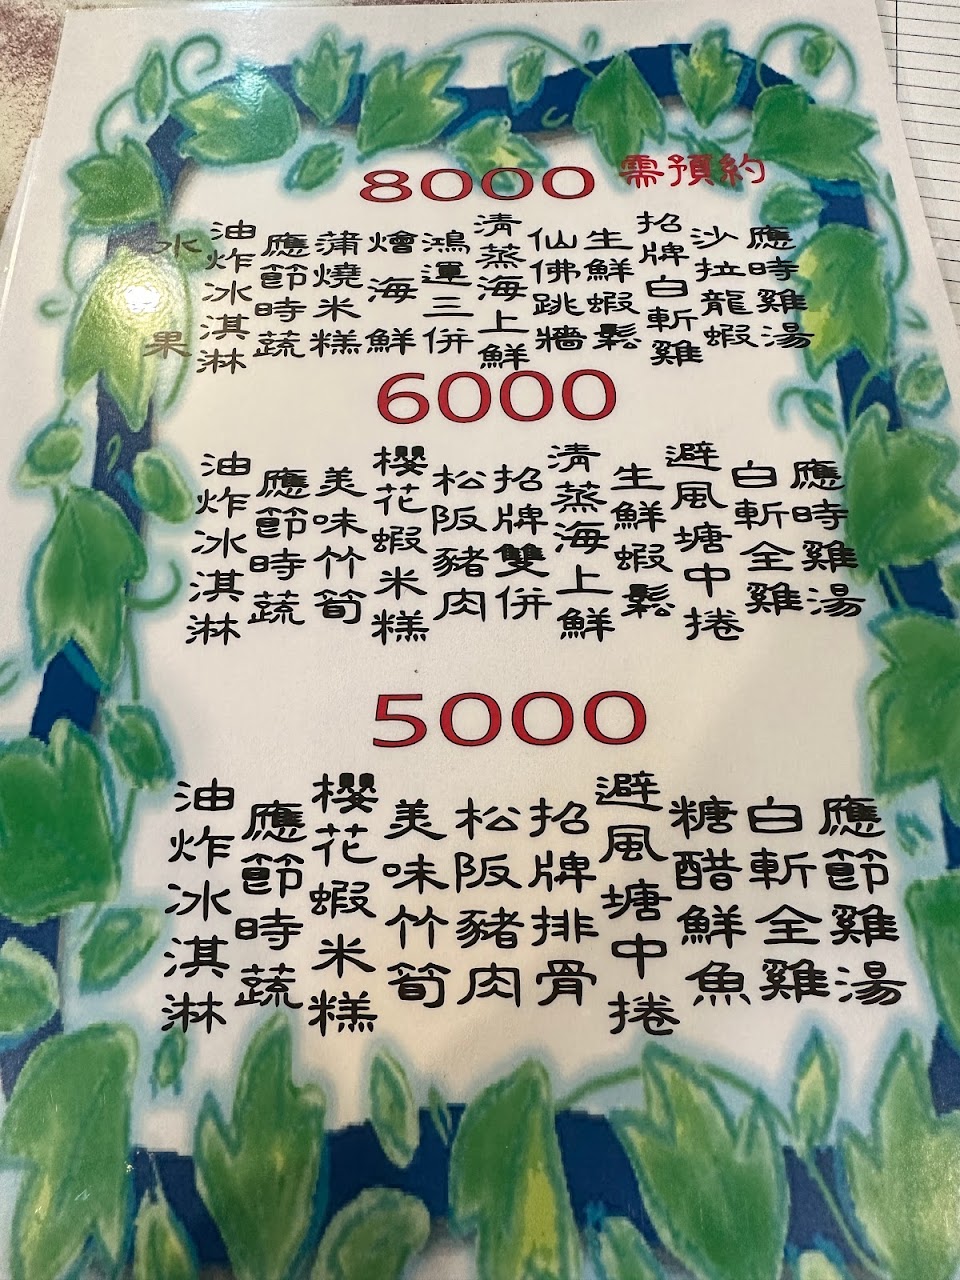 8000 需預約
應時雞湯
沙拉龍蝦
招牌白斬雞
生鮮蝦鬆
仙佛跳牆
清蒸海上鮮
鴻運三併
燴海鮮
蒲燒米糕
應節時蔬
油炸冰淇淋
水果
6000
應時雞湯
白斬全雞
避風塘中捲
生鮮蝦鬆
清蒸海上鮮
招牌雙併
松阪豬肉
櫻花蝦米糕
美味竹筍
應節時蔬
油炸冰淇淋
5000
應節雞湯
白斬全雞
糖醋鮮魚
避風塘中捲
招牌排骨
松阪豬肉
美味竹筍
櫻花蝦米糕
應節時蔬
油炸冰淇淋